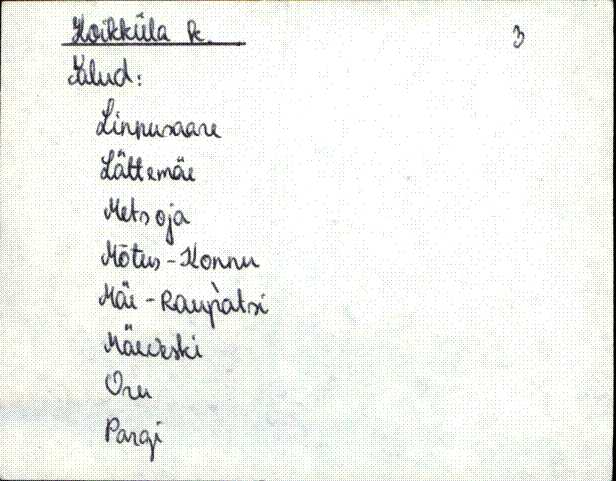 Koikküla k. 3
Talud:
Linnusaare
Lättemäe
Metsoja
Mõtus-Konnu
Mäe-Raup̀atsi
Mäeveski
Oru
Pargi